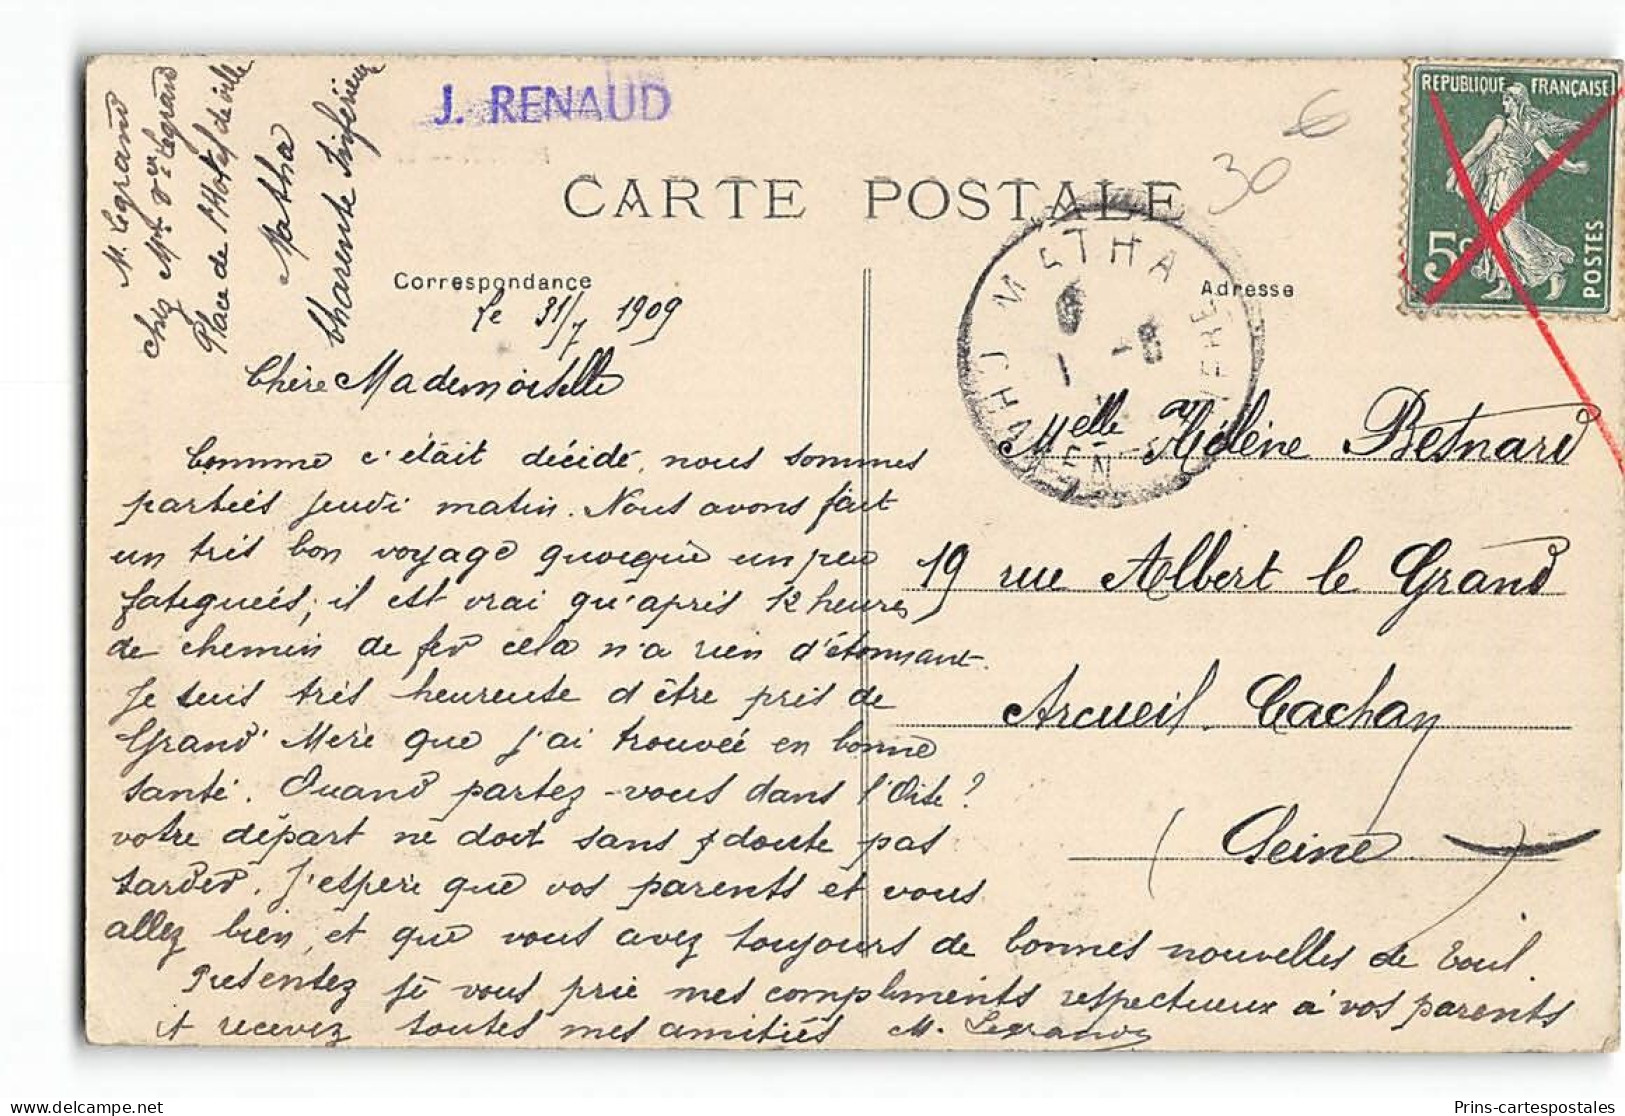 M. Legrand
chez Mme Vve Legrand
Place de l'Hotel de ville
Matha
Charente Inférieure
J. RENAUD
30 €
REPUBLIQUE FRANÇAISE
5c
POSTES
CARTE POSTALE
MATHA
Correspondance
Adresse
le 31/7 1909
Chère Mademoiselle
Comme c'était décidé, nous sommes
parties jeudi matin. Nous avons fait
un très bon voyage quoique un peu
fatiguées, il est vrai qu'après 12 heures
de chemin de fer cela n'a rien d'étonnant.
Je suis très heureuse d'être près de
Grand' Mère que j'ai trouvée en bonne
santé. Quand partez-vous dans l'Oise ?
votre départ ne doit sans doute pas
tarder. J'espère que vos parents et vous
allez bien, et que vous avez toujours de bonnes nouvelles de Toul.
Présentez je vous prie mes compliments respectueux à vos parents
et recevez toutes mes amitiés M. Legrand
Melle Hélène Besnard
19 rue Albert le Grand
Arcueil. Cachan
(Seine)
Prins-cartespostales